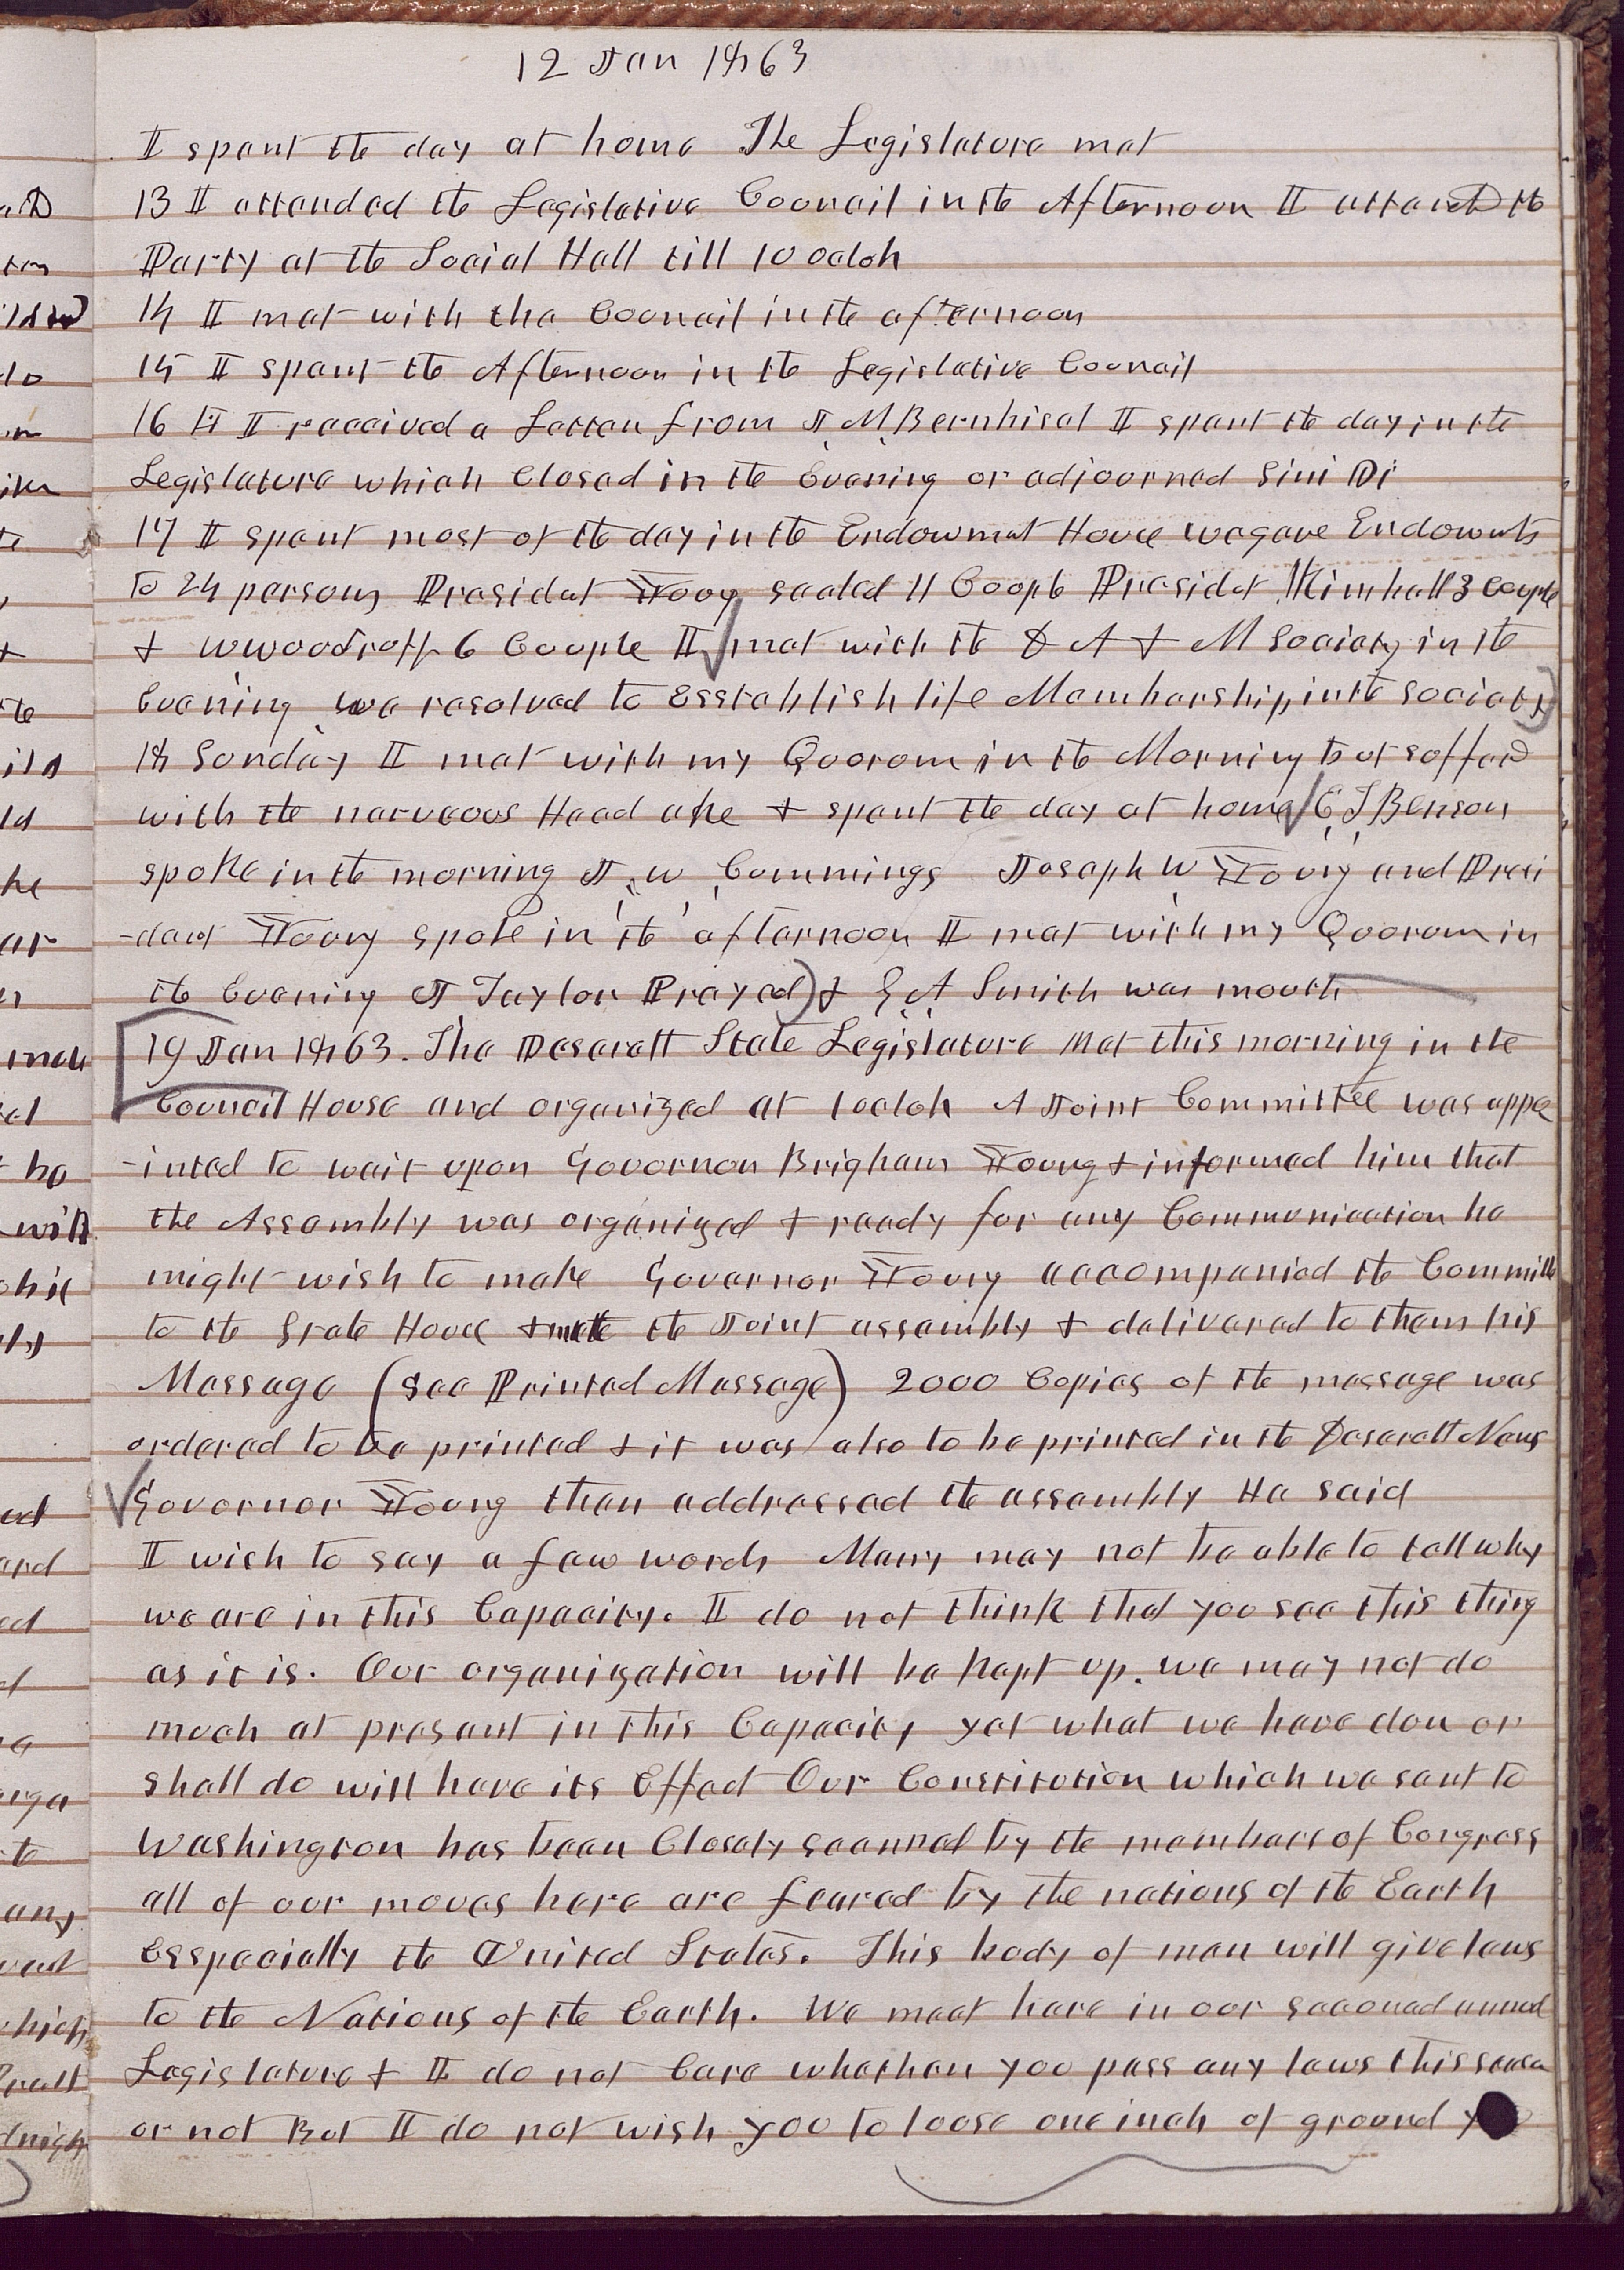 12 Jan 1863
I spent the day at home The Legislature met
13 I attended the Legislative Council in the Afternoon I attend the
Party at the Social Hall till 10 oclok
14 I met with the Council in the afternoon
15 I spent the Afternoon in the Legislative Council
16 I received a Letter from J. M. Bernhisel I spent the day in the
Legislature which Closed in the Evening or adjourned Sini Di
17 I spent most of the day in the Endowmet House we gave Endowmts
To 24 persons Presidet Young sealed 11 Coople Presidet Kimball 3 couple
& W Woodruff 6 Couple I met with the D A & M Society in the
Evening we resolved to Esstablish life Membership, in the society
18 Sunday I met with my Quorum in the Morning but suffed
with the nerveous Head ake & spent the day at home E, T, Benson
spoke in the morning J. W. Cummings Joseph W Young and Presi
-dent Young spoke in the afternoon I met with my Quorum in
the Evening J Taylor Prayed & G A Smith was mouth
19 Jan 1863. The Deserett State Legislature Met this morning in the
Council House and organized at 10 oclok A Joint Committee was appo
-inted to wait upon Governor Brigham Young & informed him that
the Assembly was organized & ready for any Communication he
might wish to make Governor Young accompanied the Committe
to the State House & mette the Joint assembly & delivered to them his
Message (see Printed Message) 2000 Copies of the message was
ordered to be printed & it was also to be printed in the Deserett News
Governor Young then addressed the assembly He said
I wish to say a few words Many may not be able to tell why
we are in this Capacity. I do not think that you see this thing
as it is. Our organization will be kept up. we may not do
much at present in this Capacity yet what we have don or
shall do will have its Effect Our Constitution which we sent to
Washington has been Closely scanned by the members of Congress
all of our moves here are feared by the nations of the Earth
Esspecially the United States. This body of men will give laws
to the Nations of the Earth. We meet here in our seccond annual
Legislature & I do not Care whether you pass any laws this session
or not But I do not wish you to loose one inch of ground